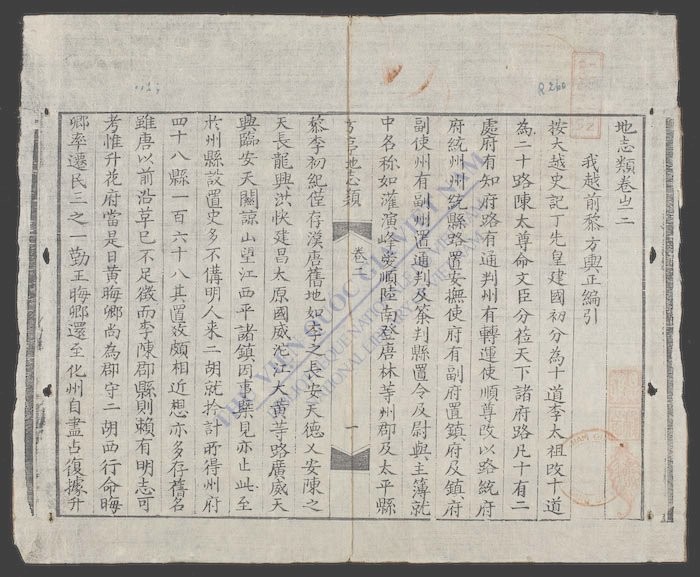 地志類卷之二
我越前黎方輿正編引
按大越史記丁先皇建國初分為十道李太祖改十道
為二十路陳太尊命文臣分莅天下諸府路凡十有二
處府有知府路有通判州有轉運使順尊改以路統府
府統州州統縣路置安撫使府有副府置鎮府及鎮府
副使州有副州置通判及簽判縣置令及尉與主簿就
中名称如灌演峰安順陸南登唐林等州郡及太平縣
方亭地志類
卷二
一
黎李初紀僅存漢唐舊地如李之長安天德又安陳之
天長龍興洪快建昌太原國威沱江大黄等路廣威天
興臨安天關諒山望江西平諸鎮因事槩見亦止此至
於州縣設置史多不備明人来二胡就扵計所得州府
四十八縣一百六十八其置放頗相近想亦多存舊名
雖唐以前沿革已不足徴而李陳郡縣則賴有明志可
考惟升花府當是日黄晦卿尚為郡守二胡西行命晦
卿率遷民三之一勤王晦卿還至化州自盡占復據升
R260
THƯ VIỆN QUỐC GIA VIỆT NAM
BIBLIOTHEQUE NATIONALE DU VIETNAM
NATIONAL LIBRARY OF VIETNAM